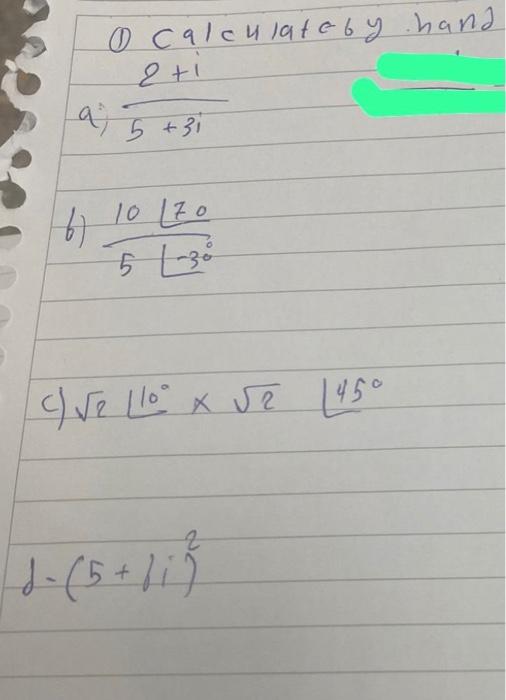 ① Calculate by hand
2+i
a) 5+3i
10 ∠70
b) 5 ∠-30°
c) √2 ∠10° × √2 ∠45°
d-(5+1i)²